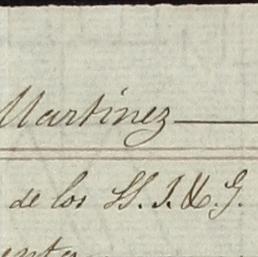 Martinez
de los SS. J. & G.